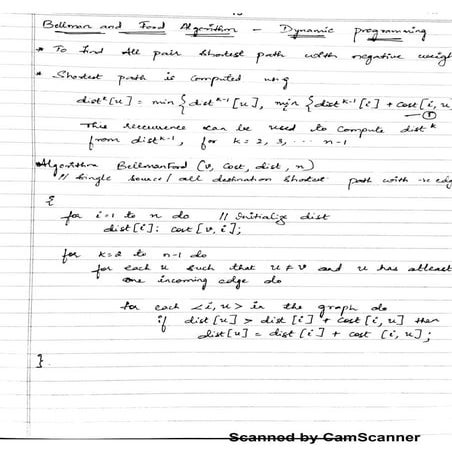 Bellman and Ford Algorithm - Dynamic programming
* To find All pair shortest path with negative weigh
* Shortest path is computed using
dist^k[u] = min { dist^k-1[u], min { dist^k-1[i] + cost[i, u]
①
This recurrence can be used to compute dist^k
from dist^k-1, for k = 2, 3, ... n-1
* Algorithm BellmanFord (v, cost, dist, n)
// Single source/ all destination shortest path with -ve edg
{
for i=1 to n do // Initialize dist
dist[i]: cost[v, i];
for k=2 to n-1 do
for each u such that u ≠ v and u has atleast
one incoming edge do
for each <i, u> in the graph do
if dist[u] > dist[i] + cost[i, u] then
dist[u] = dist[i] + cost[i, u];
}
Scanned by CamScanner